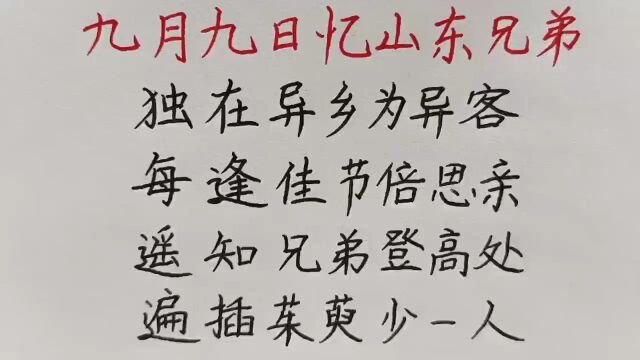 九月九日忆山东兄弟
独在异乡为异客
每逢佳节倍思亲
遥知兄弟登高处
遍插茱萸少一人